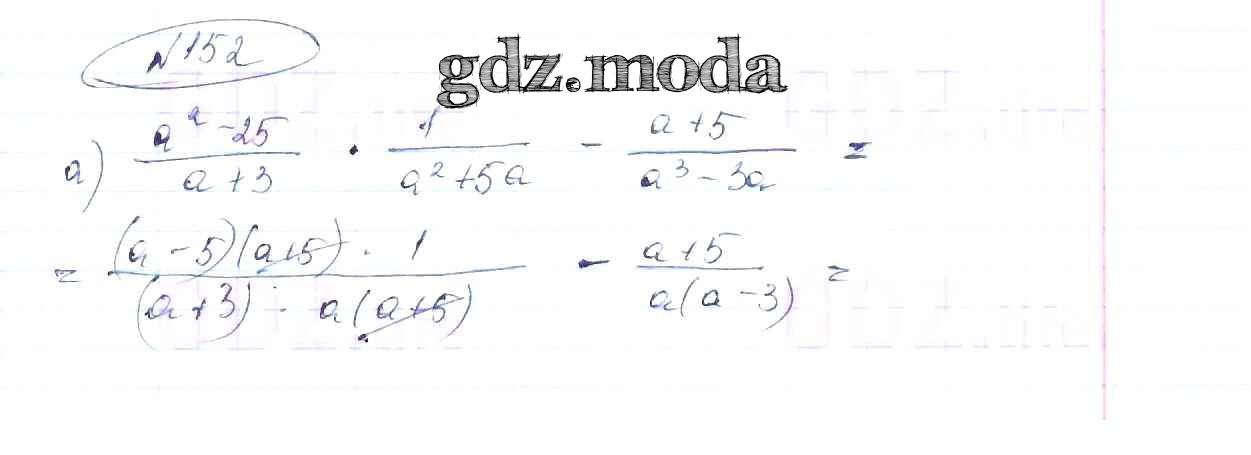 №152
gdz.moda
а) (a² - 25)/(a + 3) · 1/(a² + 5a) - (a + 5)/(a³ - 3a) =
= ((a - 5)(a + 5) · 1)/((a + 3) · a(a + 5)) - (a + 5)/(a(a - 3)) =